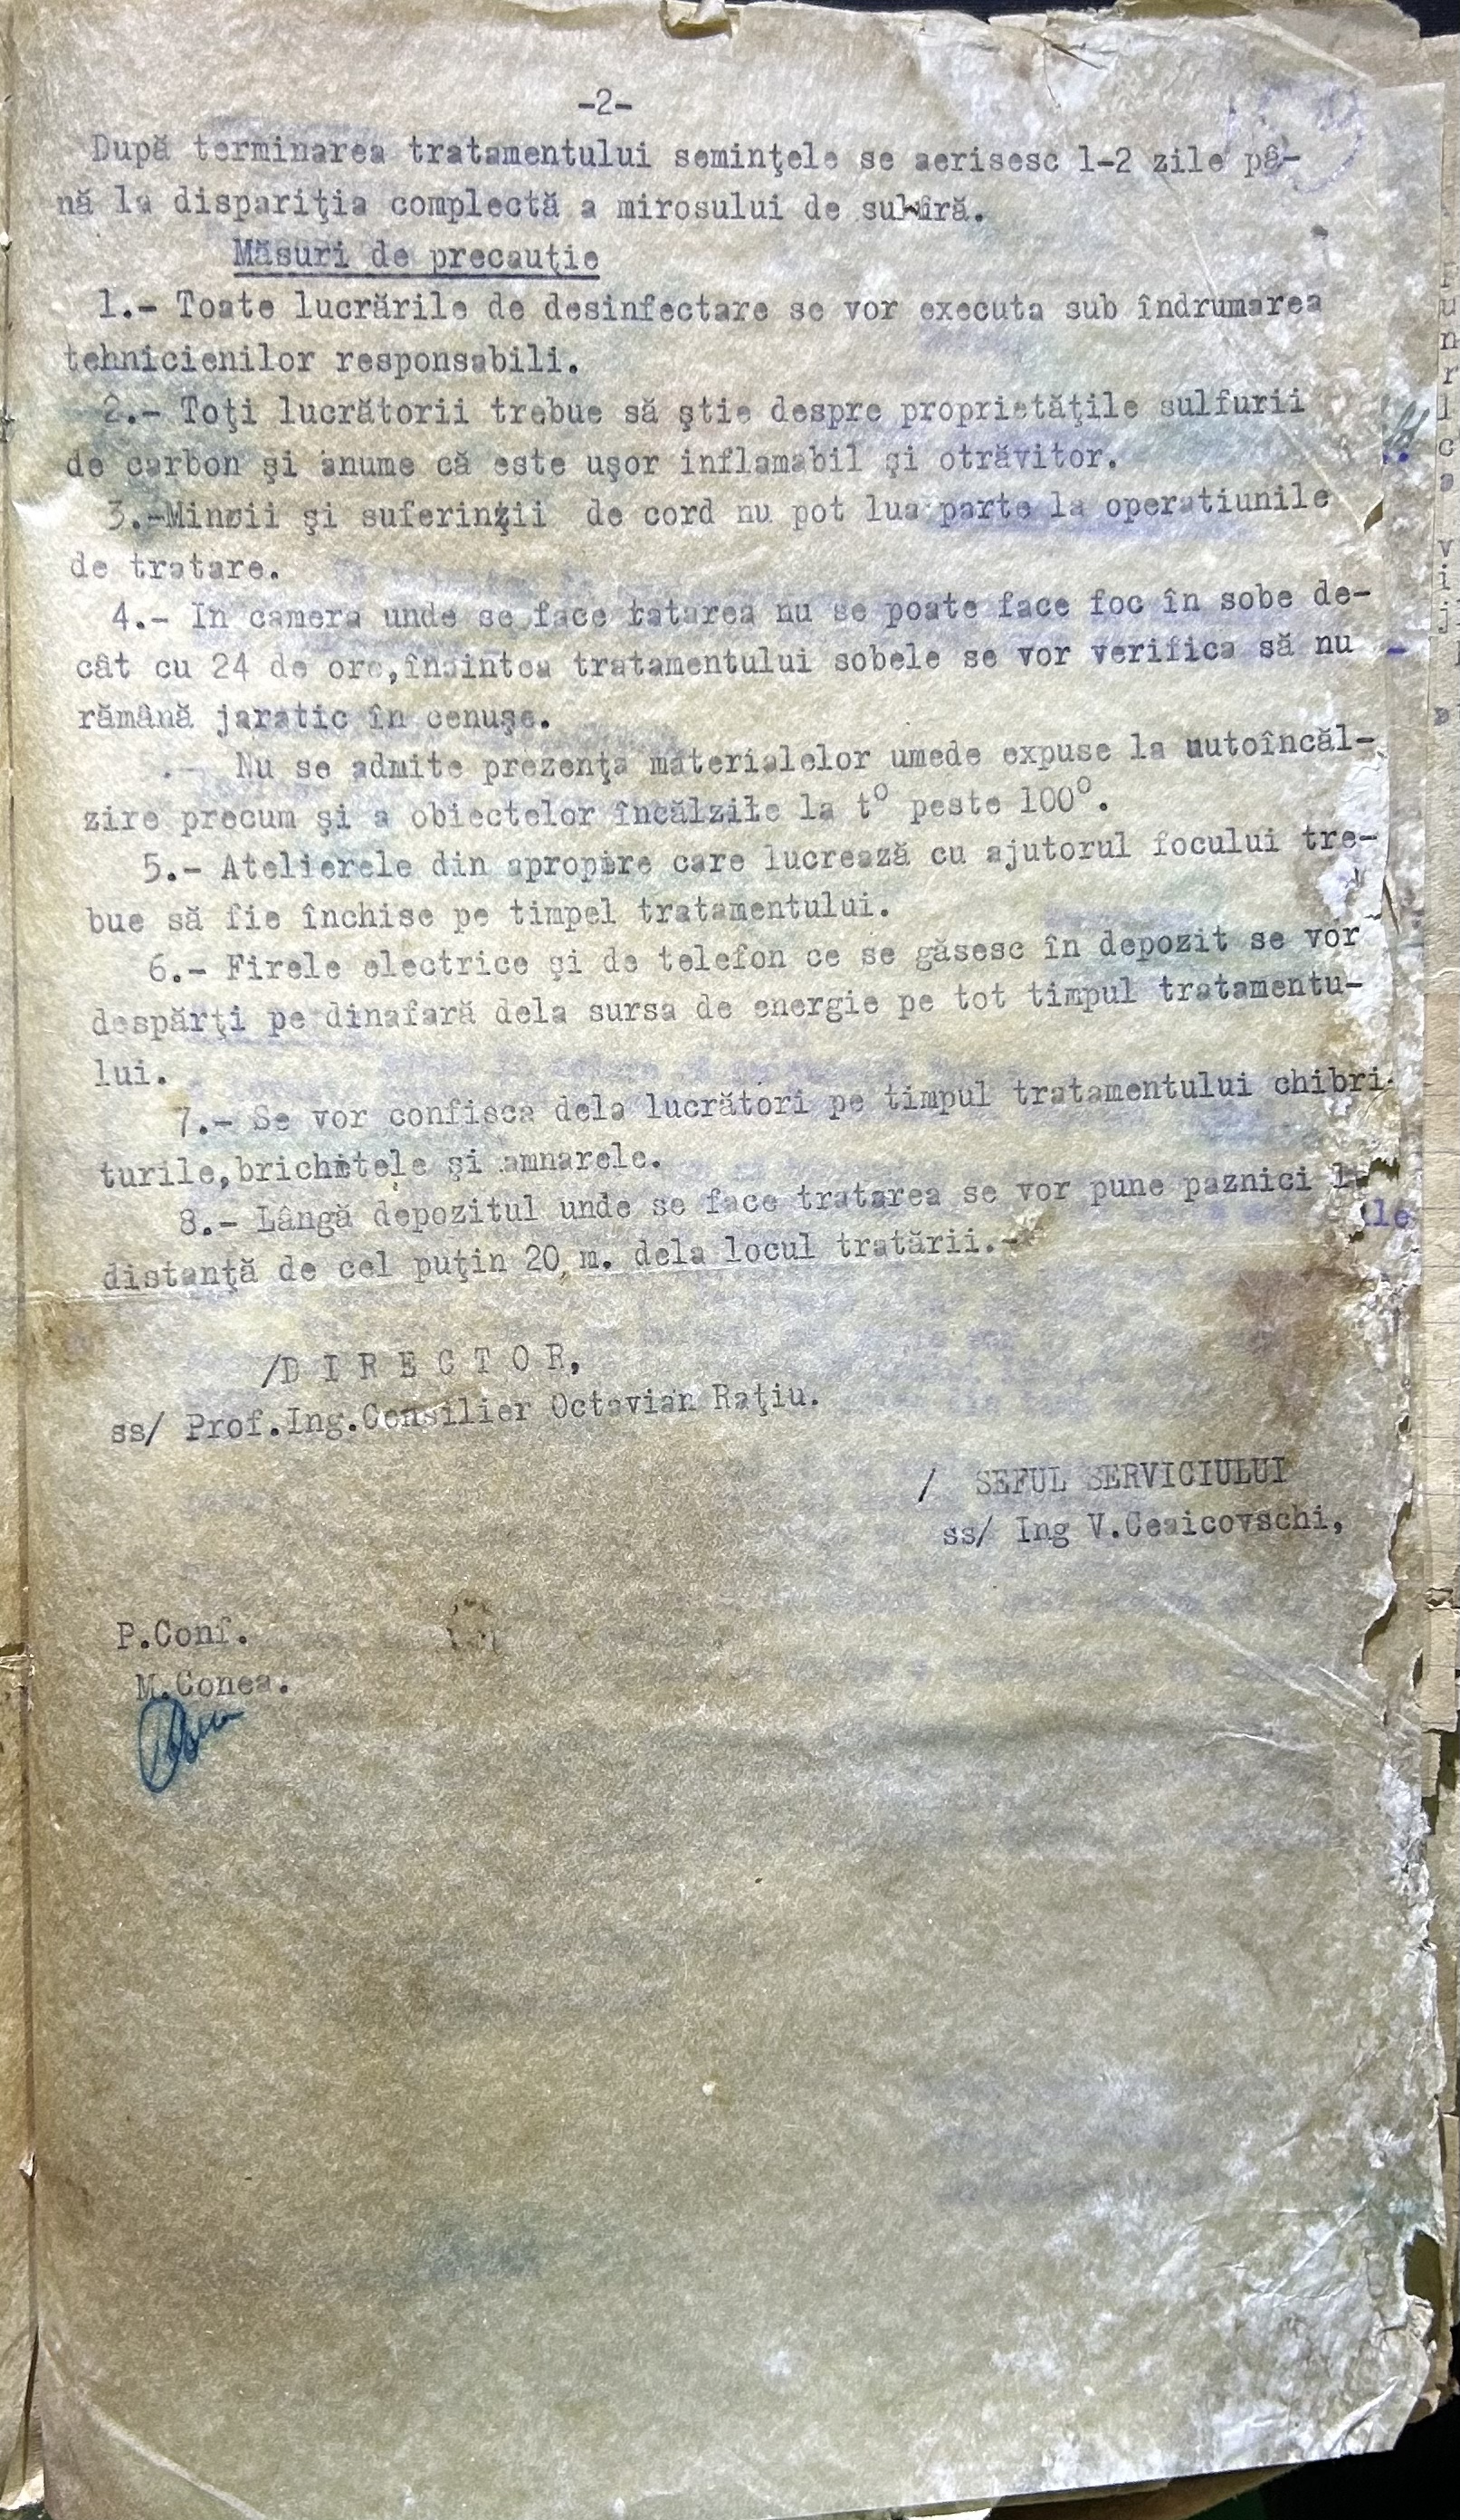 -2-
După terminarea tratamentului seminţele se aerisesc 1-2 zile pâ-
nă la dispariţia complectă a mirosului de
Măsuri de precauţie
1.- Toate lucrările de desinfectare se vor executa sub îndrumarea
tehnicienilor responsabili.
2.- Toţi lucrătorii trebue să ştie despre proprietăţile sulfurii
de carbon şi anume că este uşor inflamabil şi otrăvitor.
3.-Minorii şi suferinzii de cord nu pot lua parte la operatiunile
de tratare.
4.- In camera unde se face tatarea nu se poate face foc în sobe de-
cât cu 24 de ore,înaintea tratamentului sobele se vor verifica să nu
rămână jaratic în cenuşe.
.- Nu se admite prezenţa materialelor umede expuse la autoîncăl-
zire precum şi a obiectelor încălzite la t° peste 100°.
5.- Atelierele din apropire care lucrează cu ajutorul focului tre-
bue să fie închise pe timpel tratamentului.
6.- Firele electrice şi de telefon ce se găsesc în depozit se vor
despărţi pe dinafară dela sursa de energie pe tot timpul tratamentu-
lui.
7.- Se vor confisca dela lucrători pe timpul tratamentului chibri-
turile,brichetele şi amnarele.
8.- Lângă depozitul unde se face tratarea se vor pune paznici
distanţă de cel puţin 20 m. dela locul tratării.-
/D I R E C T O R,
ss/ Prof.Ing.Consilier Octavian Raţiu.
/ SEFUL SERVICIULUI
ss/ Ing V.Ceaicovschi,
P.Conf.
M.Conea.